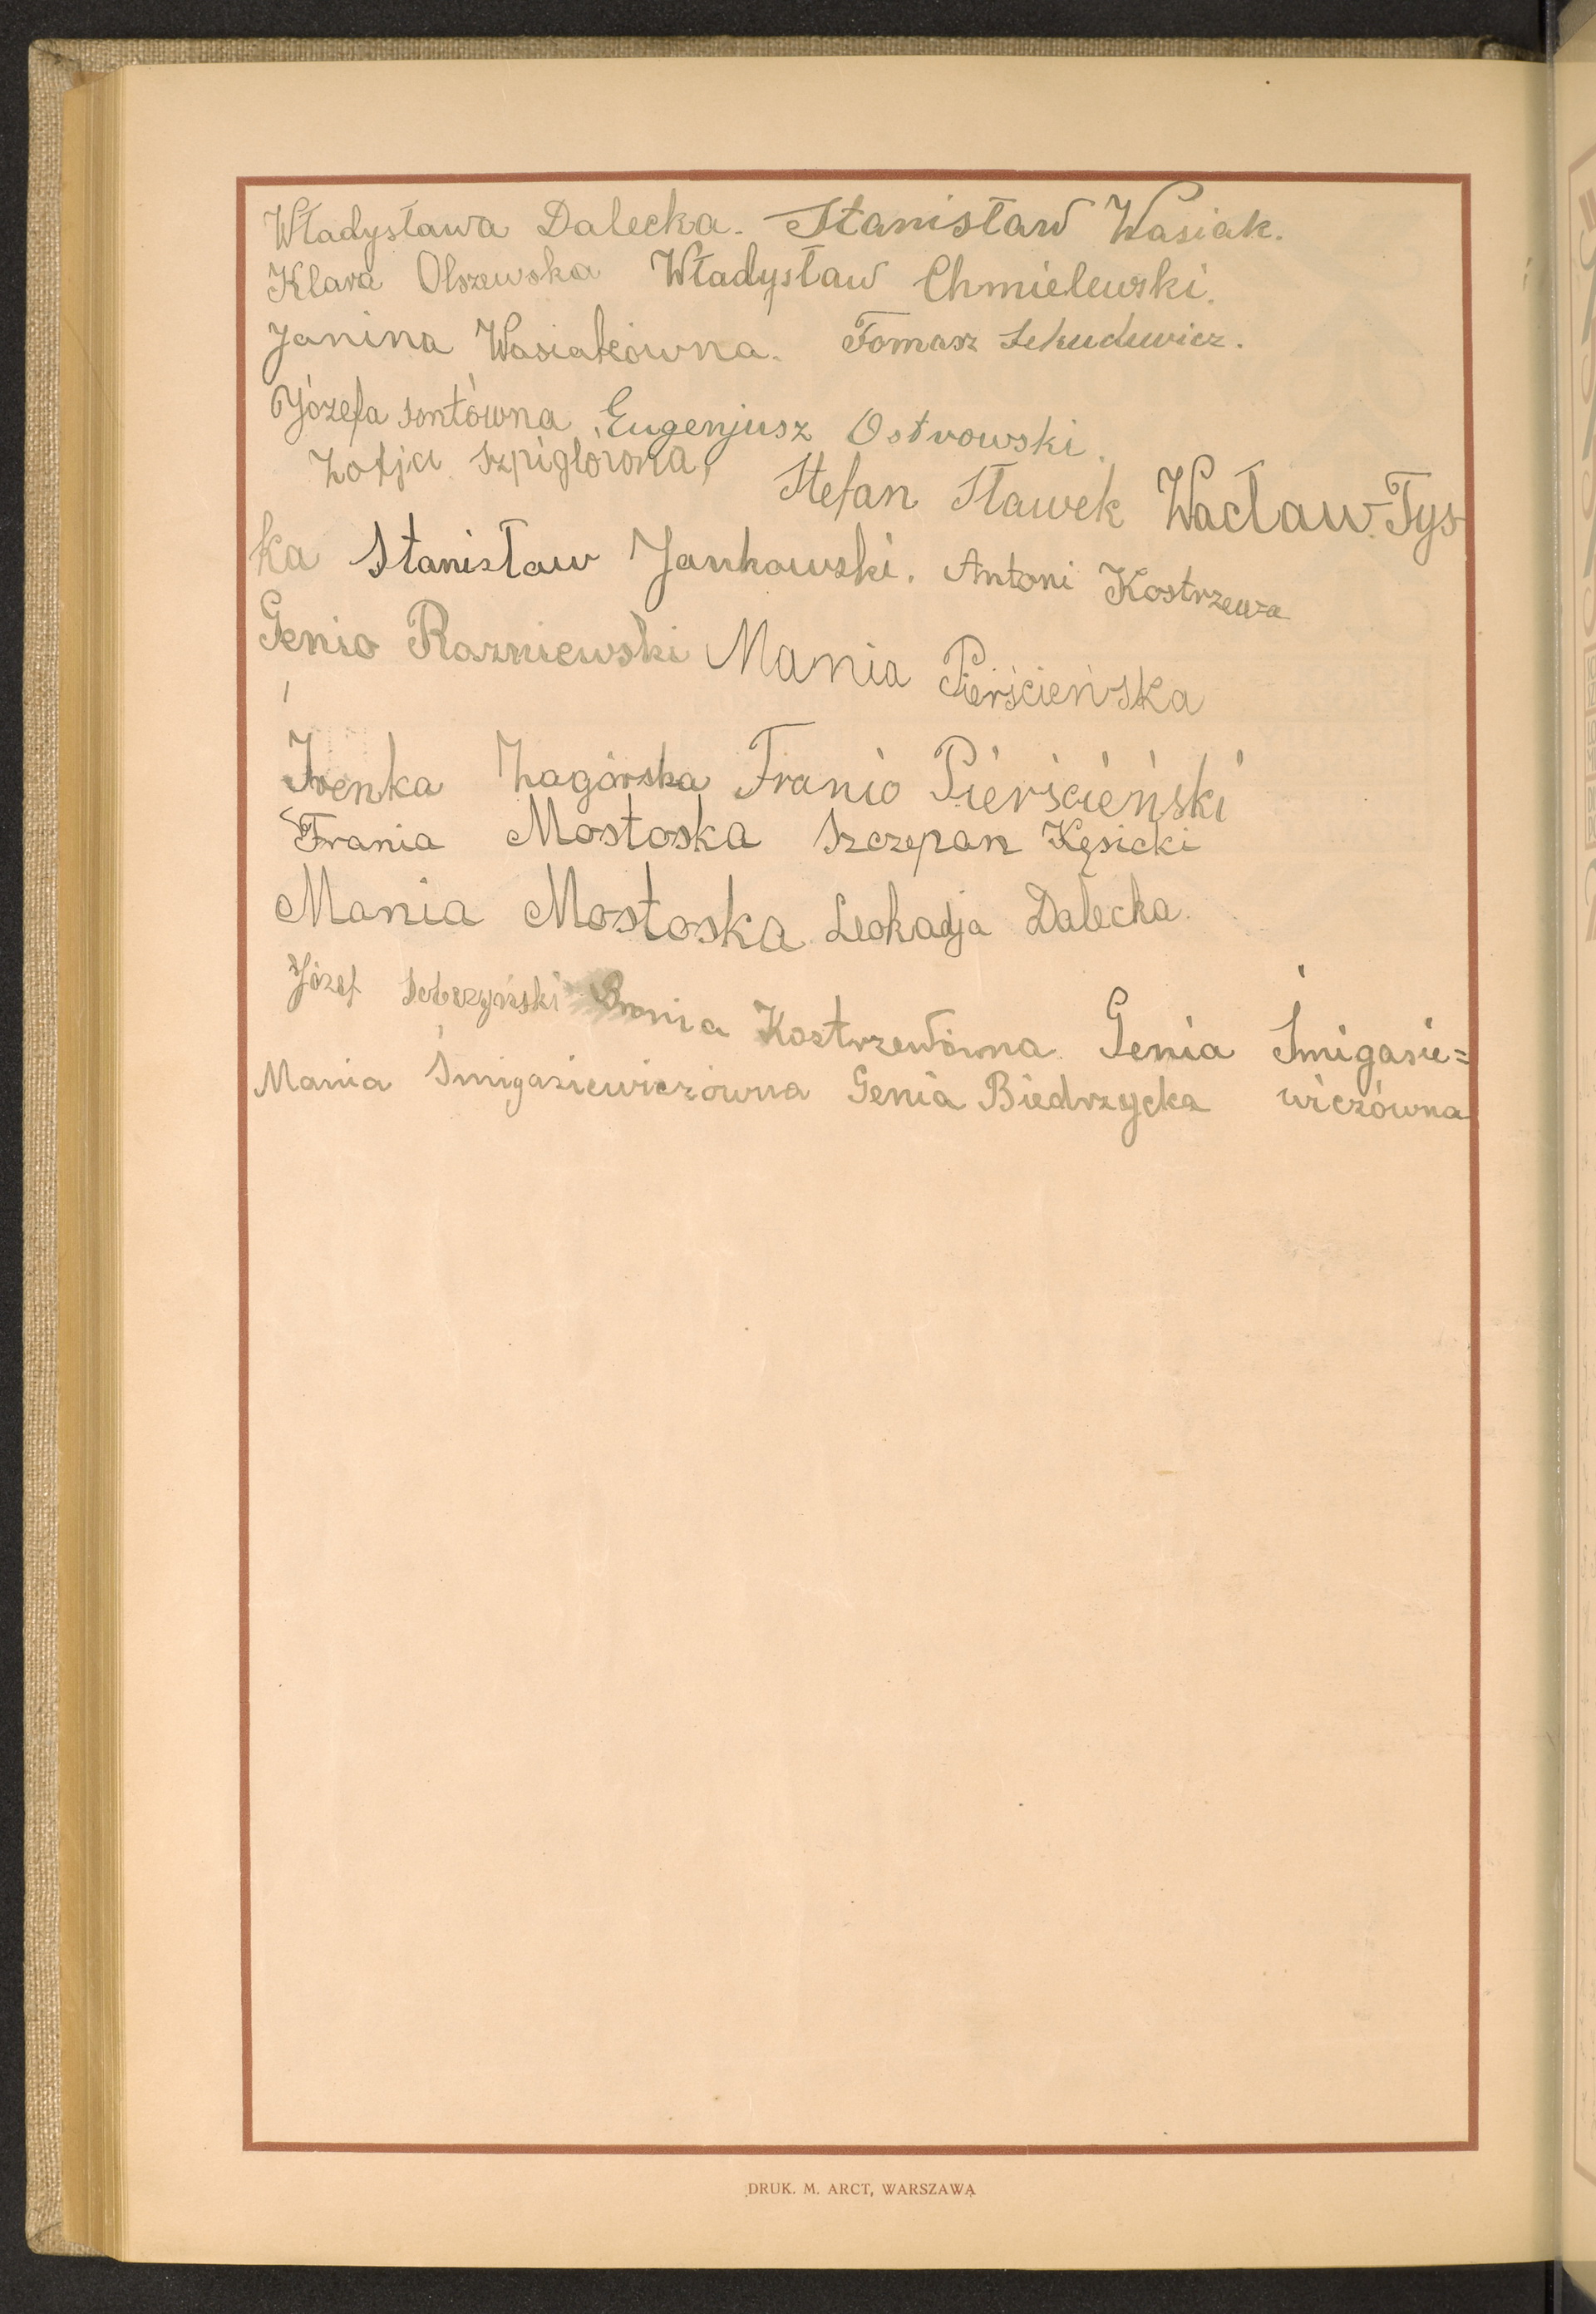 Władysława Dalecka. Stanisław Wasiak.
Klara Olszewska Władysław Chmielewski.
Janina Wasiakówna. Tomasz
Józefa Sontówna, Eugenjusz Ostrowski.
Zofja Szpiglówna, Stefan Sławek Wacław Tys
ka Stanisław Jankowski. Antoni Kostrzewa
Genio Razniewski Mania Pierścieńska
Irenka Zagórska Franio Pierścieński
Frania Mostoska Szczepan Kęsicki
Mania Mostoska Leokadja Dalecka.
Józef Kostrzewówna. Genia Śmigasie=
Mania Śmigasiewiczówna Genia Biedrzycka wiczówna
DRUK. M. ARCT, WARSZAWA